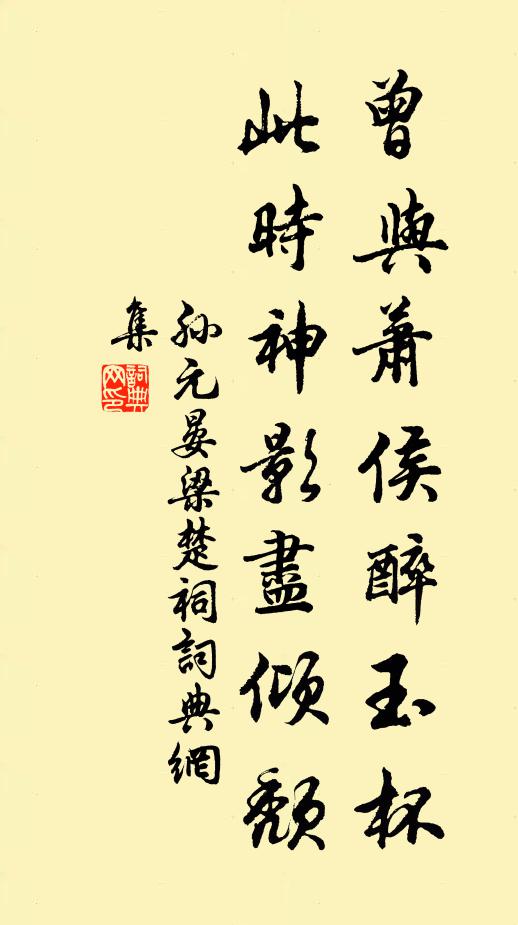 曾與蕭侯醉玉杯
此時神影盡傾頹
孫元晏梁楚祠詞典網
集
詞典網印